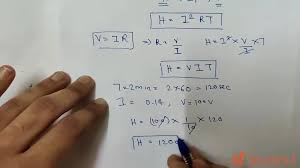 H = I² RT
V = IR ⇒ R = V/I H = I² × V/I × T
H = VIT
T = 2min = 2×60 = 120 sec
I = 0.1A, V = 100V
H = (100) × 1/10 × 120
H = 120